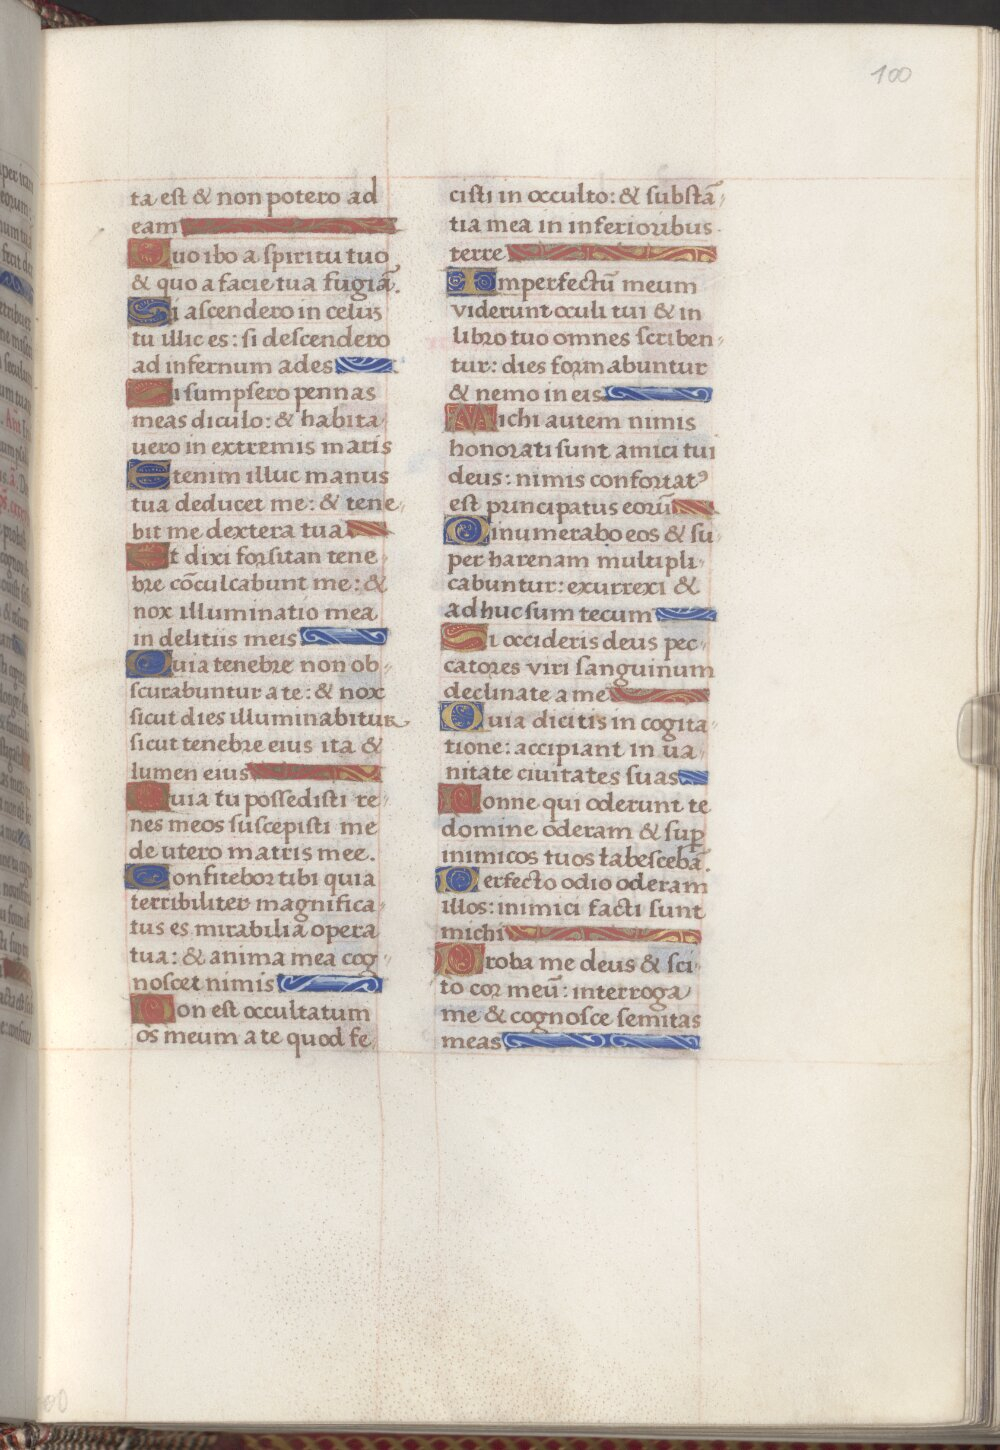 100
ta est & non potero ad
eam
Quo ibo a spiritu tuo
& quo a facie tua fugiā.
Si ascendero in celum
tu illic es: si descendero
ad infernum ades
Si sumpsero pennas
meas diculo: & habita
vero in extremis maris
Etenim illuc manus
tua deducet me: & tene
bit me dextera tua
Et dixi forsitan tene
bre cōculcabunt me: &
nox illuminatio mea
in delitiis meis
Quia tenebre non ob
scurabuntur a te: & nox
sicut dies illuminabitur
sicut tenebre eius ita &
lumen eius
Quia tu possedisti re
nes meos suscepisti me
de utero matris mee.
Confitebor tibi quia
terribiliter magnifica
tus es mirabilia opera
tua: & anima mea cog
noscet nimis
Non est occultatum
os meum a te quod fe
cisti in occulto: & substā
tia mea in inferioribus
terre
Imperfectū meum
viderunt oculi tui & in
libro tuo omnes scriben
tur: dies formabuntur
& nemo in eis
Michi autem nimis
honorati sunt amici tui
deus: nimis confortatꝰ
est principatus eorū
Dinumerabo eos & su
per harenam multipli
cabuntur: exurrexi &
adhuc sum tecum
Si occideris deus pec
catores viri sanguinum
declinate a me
Quia dicitis in cogita
tione: accipiant in va
nitate civitates suas
Nonne qui oderunt te
domine oderam & suꝑ
inimicos tuos tabescebā.
Perfecto odio oderam
illos: inimici facti sunt
michi
Proba me deus & sci
to cor meū: interroga
me & cognosce semitas
meas